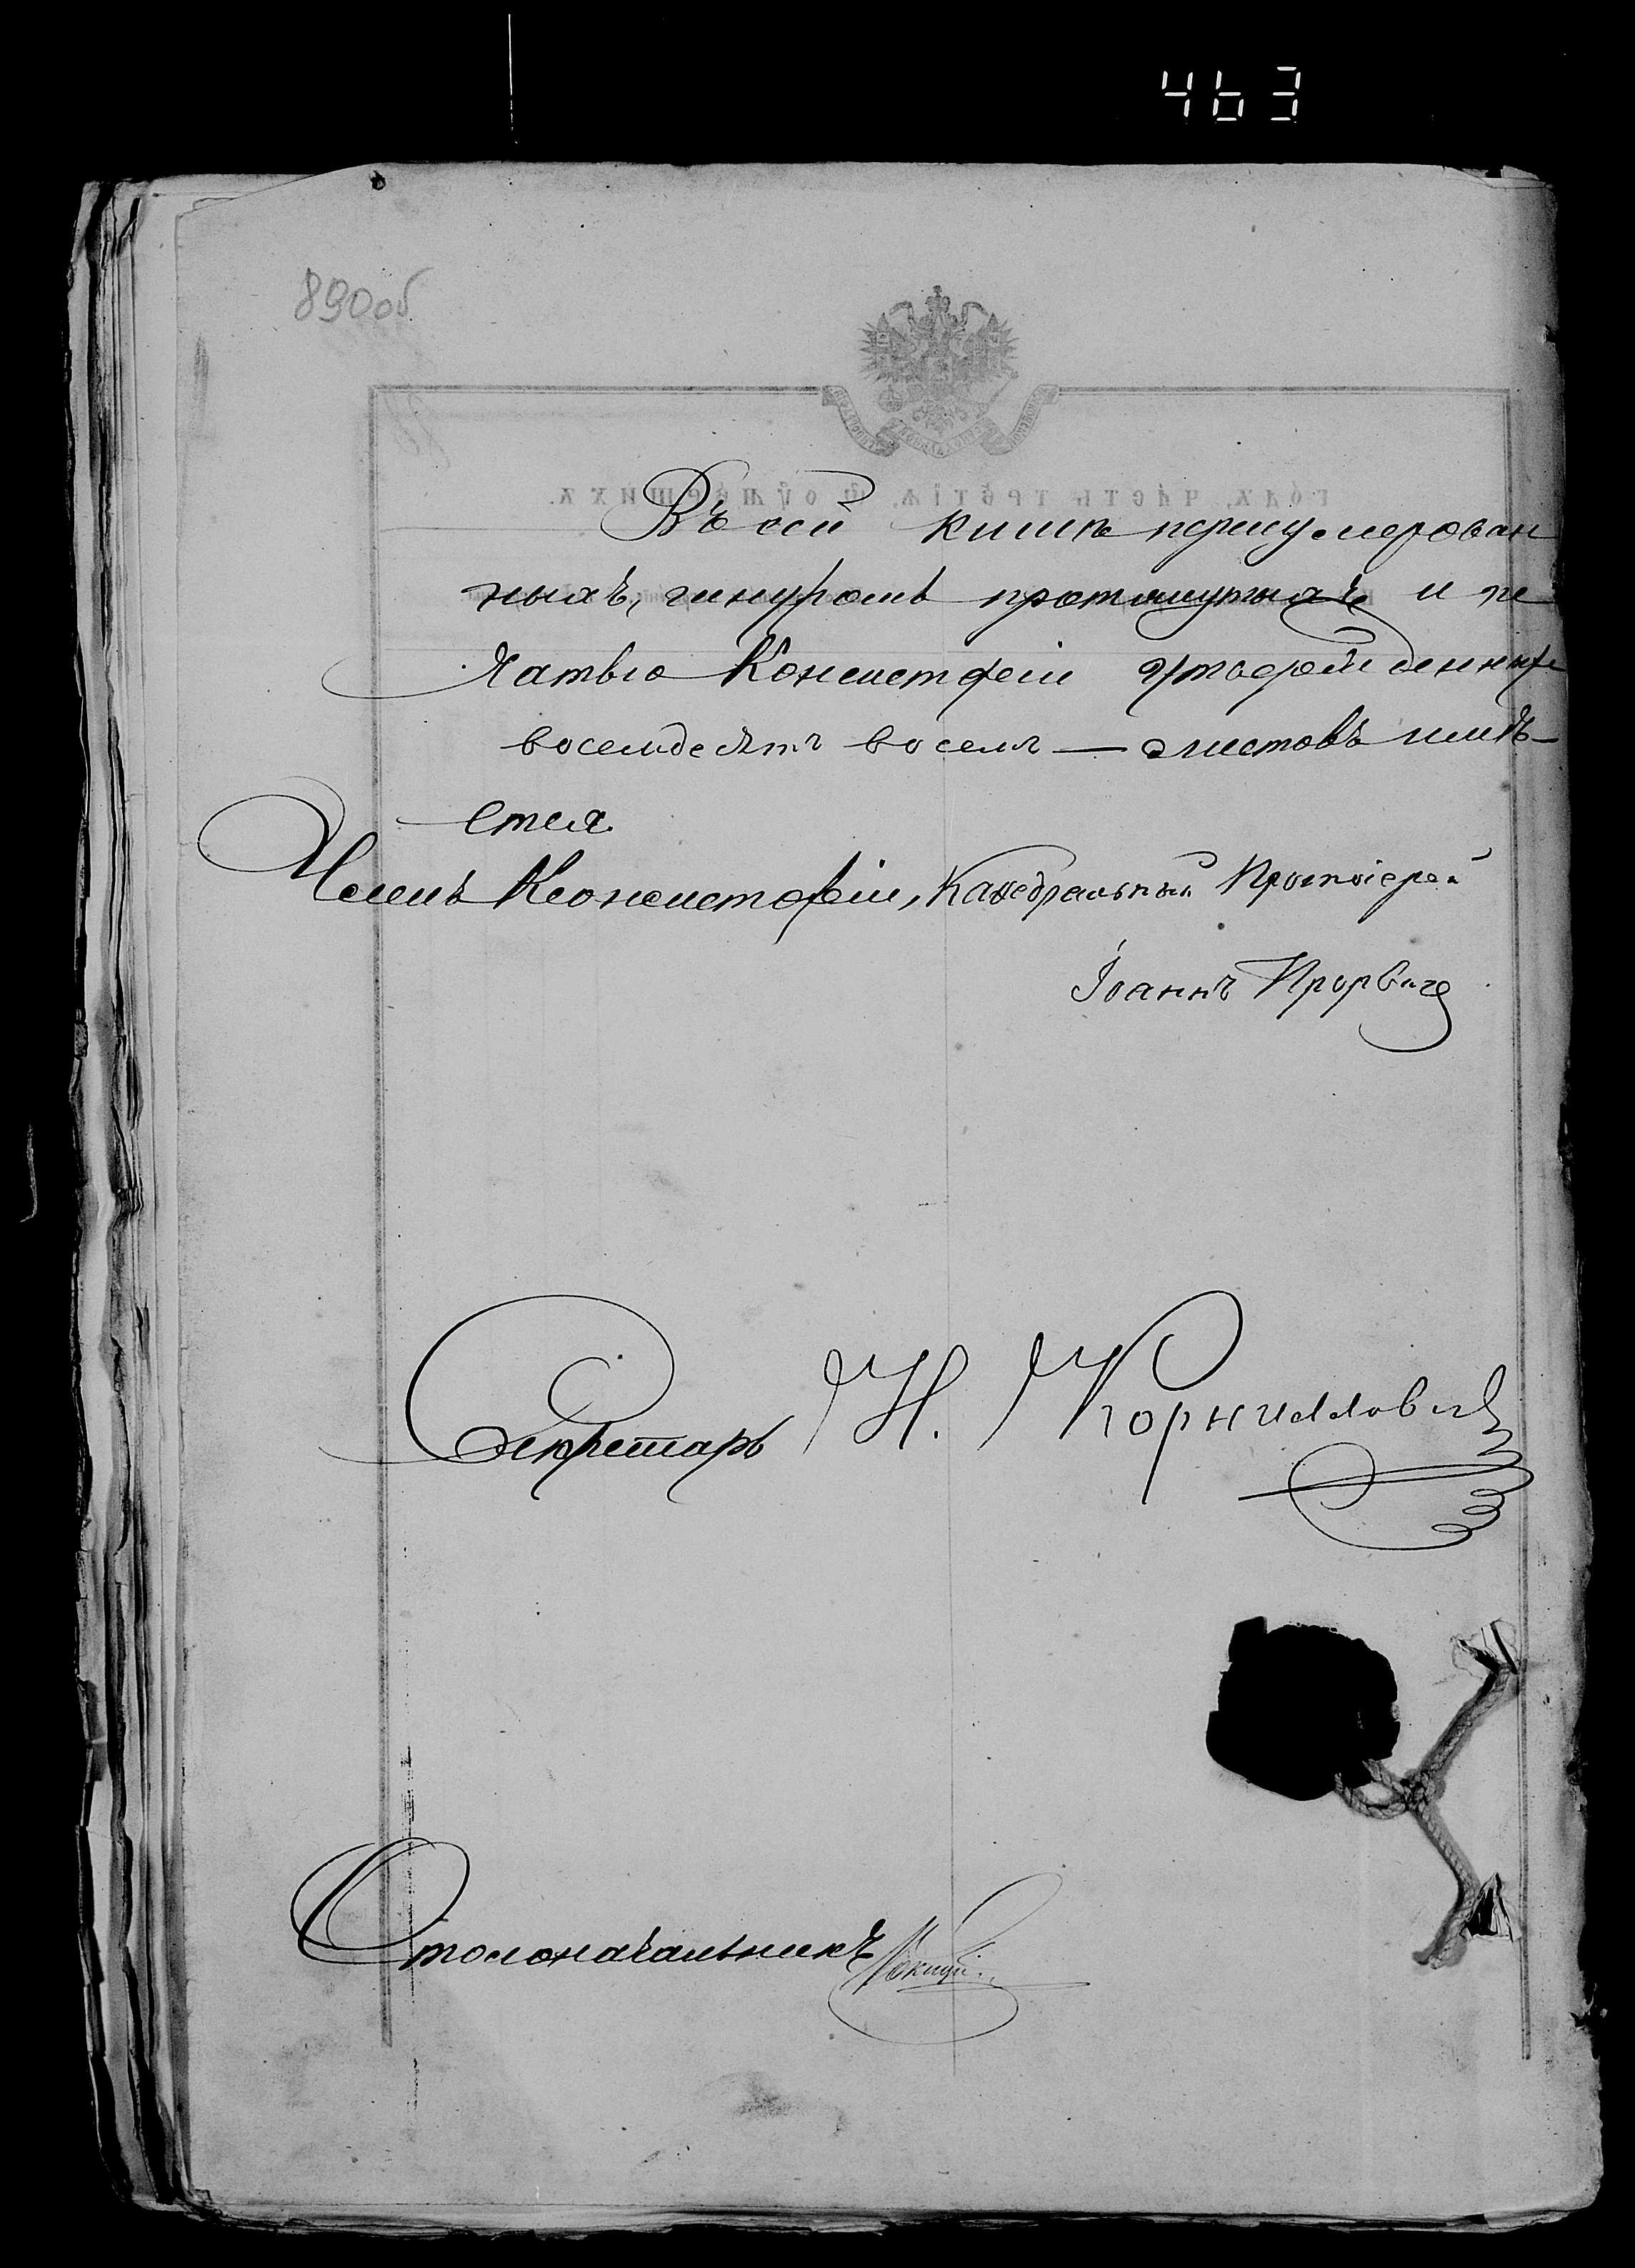 463
890об
Въ сей книгѣ перенумерован
ныхъ, шнуромъ протянутыхъ и пе
чатью Консисторіи утвержденныхъ
восемьдесятъ восемь — листовъ имѣ-
ется
Членъ Консисторіи, Каѳедральный Протоіерей
Іоаннъ
Секретарь Н. Корниллович
Столоначальникъ